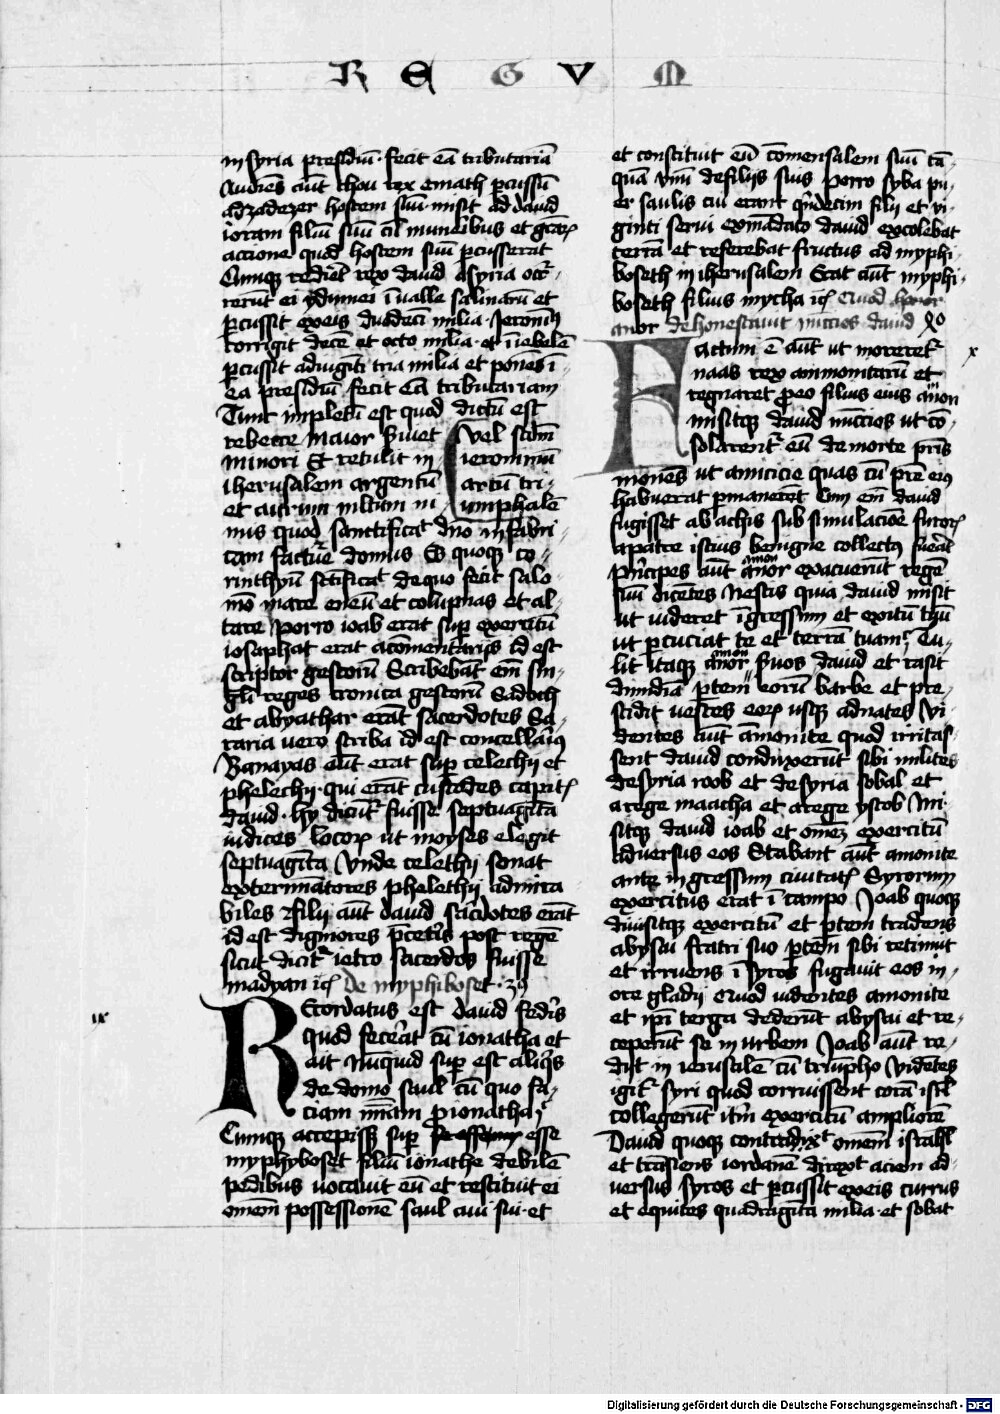 R E G V M
in syria presidiū · fecit eā tributariā
Audiēs aūt thou rex emath ꝑcussū
adzadezer hostem suū · misit ad dauid
ioram filiū suū cū muneribus et grāꝝ
accione quod hostem suū ꝑcusserat
Cumqꝫ rediret rex dauid asyria occʳ-
rerūt ei ydumei ī ualle salinarū et
ꝑcussit exeis duodecī milia · Jeronimꝰ
corrigit decē et octo milia · et ī iebelē
ꝑcussit aduigīti tria milia et ponēs ī
ea presidiū fecit eā tributariam
Tunc impletū est quod dictū est
rebecce maior seruiet
minori Et retulit in
iherusalem argentū
et aurum multum ni-
(Vel scdm
ieronimū
artū tri-
umphalē
mis quod sanctificat dn̄o in fabri-
cam facture domus Es quoqꝫ co-
rinthyū sctificat dequo fecit salo-
mō mare eneū et columpnas et al-
tare Porro ioab erat suꝑ exercitū
iosaphat erat acōmentarijs id est
scriptor gestorū Scribebāt em̄ sin-
guli reges cronica gestorū Sadoch
et abyathar erāt sacerdotes Sa-
raria uero scriba id est concellariꝰ
Banayas aūt erat suꝑ celechij et
phelechij · qui erāt custodes capitꝭ
dauid · hy dicūtʳ fuisse septuagīta
iudices locoꝝ ut moyses elegit
septuagīta Vnde celethij sonat
exterminatores phelethij admira-
biles Filij aūt dauid sac̄dotes erāt
id est digniores p̄ceteris post regē
sicut dicitʳ ietro sacerdos fuisse
madyan icꝭ De myphiboset · ix
ix
Recordatus est dauid fedīs
quod fecerat cū ionatha et
ait Nūquid suꝑ est aliqīs
de domo saul cū quo fa-
ciam miām ꝓionatha
Cumqꝫ accepisꝫ suꝑ esse
myphyboset filiū ionathe debilē
pedibus uocauit eū et restituit ei
omēm possessionē saul aui sui · et
et constituit eū cōmensalem suū tā-
quā vnū defilijs suis Porro syba pu-
er saulis cui erant qndecim filij et vi-
ginti serui exmādato dauid excolebat
terrā et referebat fructus ad myphi-
boseth in iherusalem Erat aūt myphi-
boseth filius mycha icꝭ Quod
anor dehonestauit nūccios dauid
x
Factum ē aūt ut moreretʳ
naas rex ammonitarū et
regnaret ꝓeo filius eius anon
misitqꝫ dauid nūccios ut cō-
solarentʳ eū demorte pris
monēs ut amicicie quas cū p̄re eiꝰ
habuerat ꝑmanerēt Cum em̄ dauid
fugisset ab achis sub simulacioē furoꝝ
apatre istius benigne collectꝰ fuerat
Pn̄cipes aūt anor exacuerūt regē
suū dicētes Nescis quia dauid misit
ut uideret īgressum et exitū tuū
ut ꝑcuciat te et terrā tuam · Tu-
lit itaqꝫ anor seruos dauid et rasit
dimidiā ꝑtem eorū barbe et pre-
scidit uestes eoꝝ usqꝫ adnates Vi-
dentes aūt āmonite quod irritas-
sent dauid conduxerūt sibi milites
desyria roob et desyria sobal et
arege maacha et arege ystob Mi-
sitqꝫ dauid ioab et omēꝫ exercitū
aduersus eos Stabant aūt amonite
ante ingressum ciuitatꝭ Syrorum
exercitus erat ī campo Joab quoqꝫ
diuisitqꝫ exercitū et ꝑtem tradens
abysai fratri suo ꝑtem sibi retinuit
et irruens ī syros fugauit eos in-
ore gladij Quod uidentes amonite
et ip̄i terga dederūt abysai et re-
ceperūt se in urbem Joab aūt re-
dijt in ierusalē cū triūpho Videntes
igitʳ syri quod corruissent corā isrl
collegerūt itm̄ exercitū ampliorē
Dauid quoqꝫ contradixt omēm israhl
et trāsiens iordanē dirext aciem ad-
uersus syros et ꝑcussit exeis currus
et equites quadragīta milia · et sobat
Digitalisierung gefördert durch die Deutsche Forschungsgemeinschaft - DFG